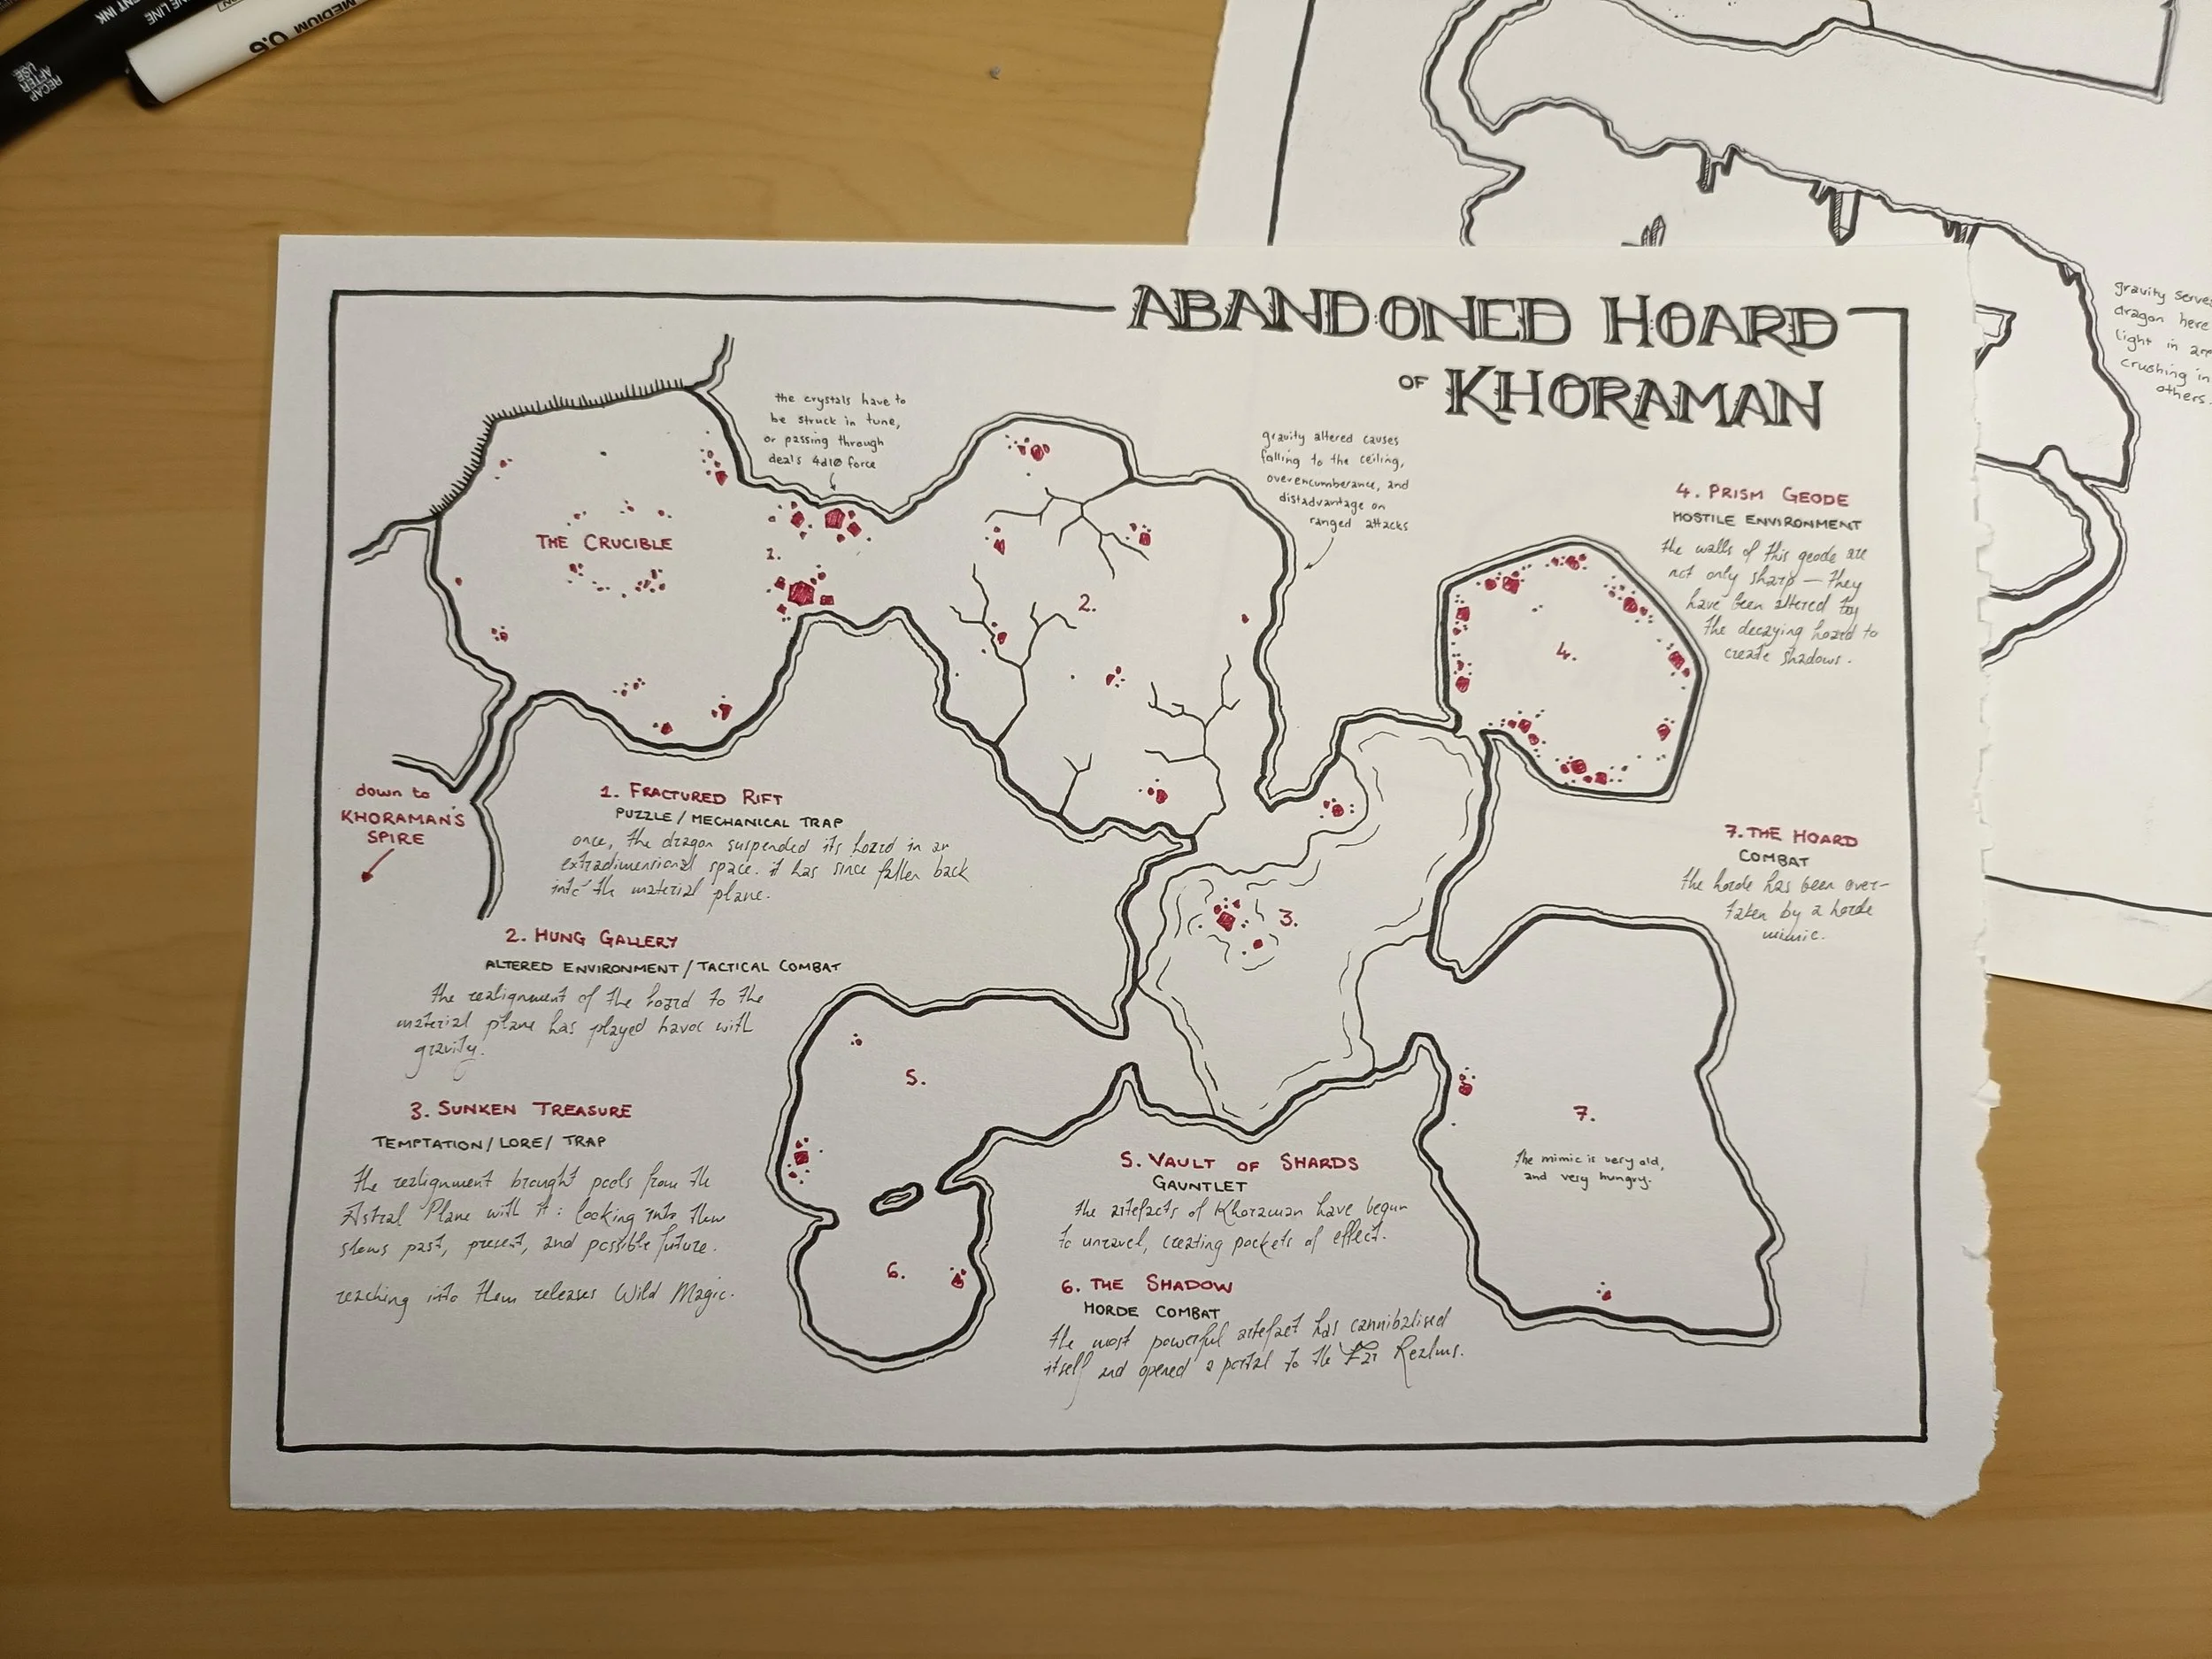 RECAP
AFTER
USE
NE LINE
ENT INK
MEDIUM 0.6
gravity serves
dragon here
light in
crushing in
others.
ABANDONED HOARD
OF KHORAMAN
the crystals have to
be struck in tune,
or passing through
deals 4d10 force
gravity altered causes
falling to the ceiling,
overencumberance, and
distadvantage on
ranged attacks
THE CRUCIBLE
1.
2.
3.
4.
5.
6.
7.
The mimic is very old,
and very hungry.
down to
KHORAMAN'S
SPIRE
1. FRACTURED RIFT
PUZZLE / MECHANICAL TRAP
once, the dragon suspended its hoard in an
extradimensional space. it has since fallen back
into the material plane.
2. HUNG GALLERY
ALTERED ENVIRONMENT / TACTICAL COMBAT
the realignment of the hoard to the
material plane has played havoc with
gravity.
3. SUNKEN TREASURE
TEMPTATION / LORE / TRAP
the realignment brought pools from the
Astral Plane with it: looking into them
shows past, present, and possible future.
reaching into them releases Wild Magic.
4. PRISM GEODE
HOSTILE ENVIRONMENT
the walls of this geode are
not only sharp — they
have been altered by
the decaying hoard to
create shadows.
5. VAULT OF SHARDS
GAUNTLET
the artefacts of Khoraman have begun
to unravel, creating pockets of effect.
6. THE SHADOW
HORDE COMBAT
the most powerful artefact has cannibalised
itself and opened a portal to the Far Realms.
7. THE HOARD
COMBAT
the horde has been over-
taken by a horde
mimic.